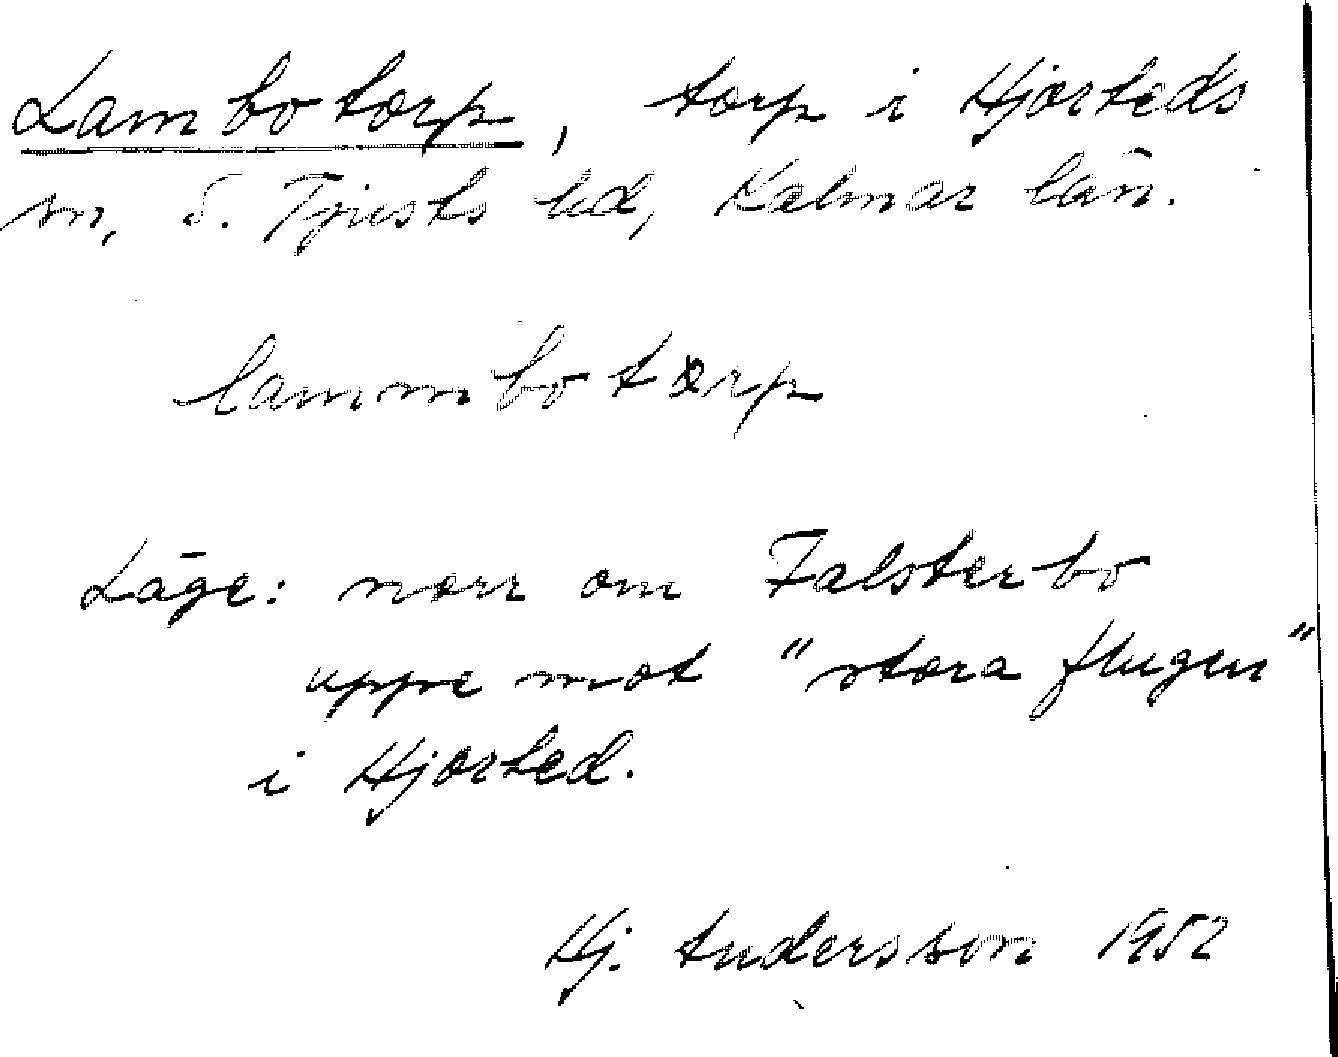 Lambotorp, torp i Hjorteds
sn, S. Tjusts hd, Kalmar län.
lammbotorp
Läge: norr om Falsterbo
uppe mot "stora flugen"
i Hjorted.
Hj. Andersson 1952